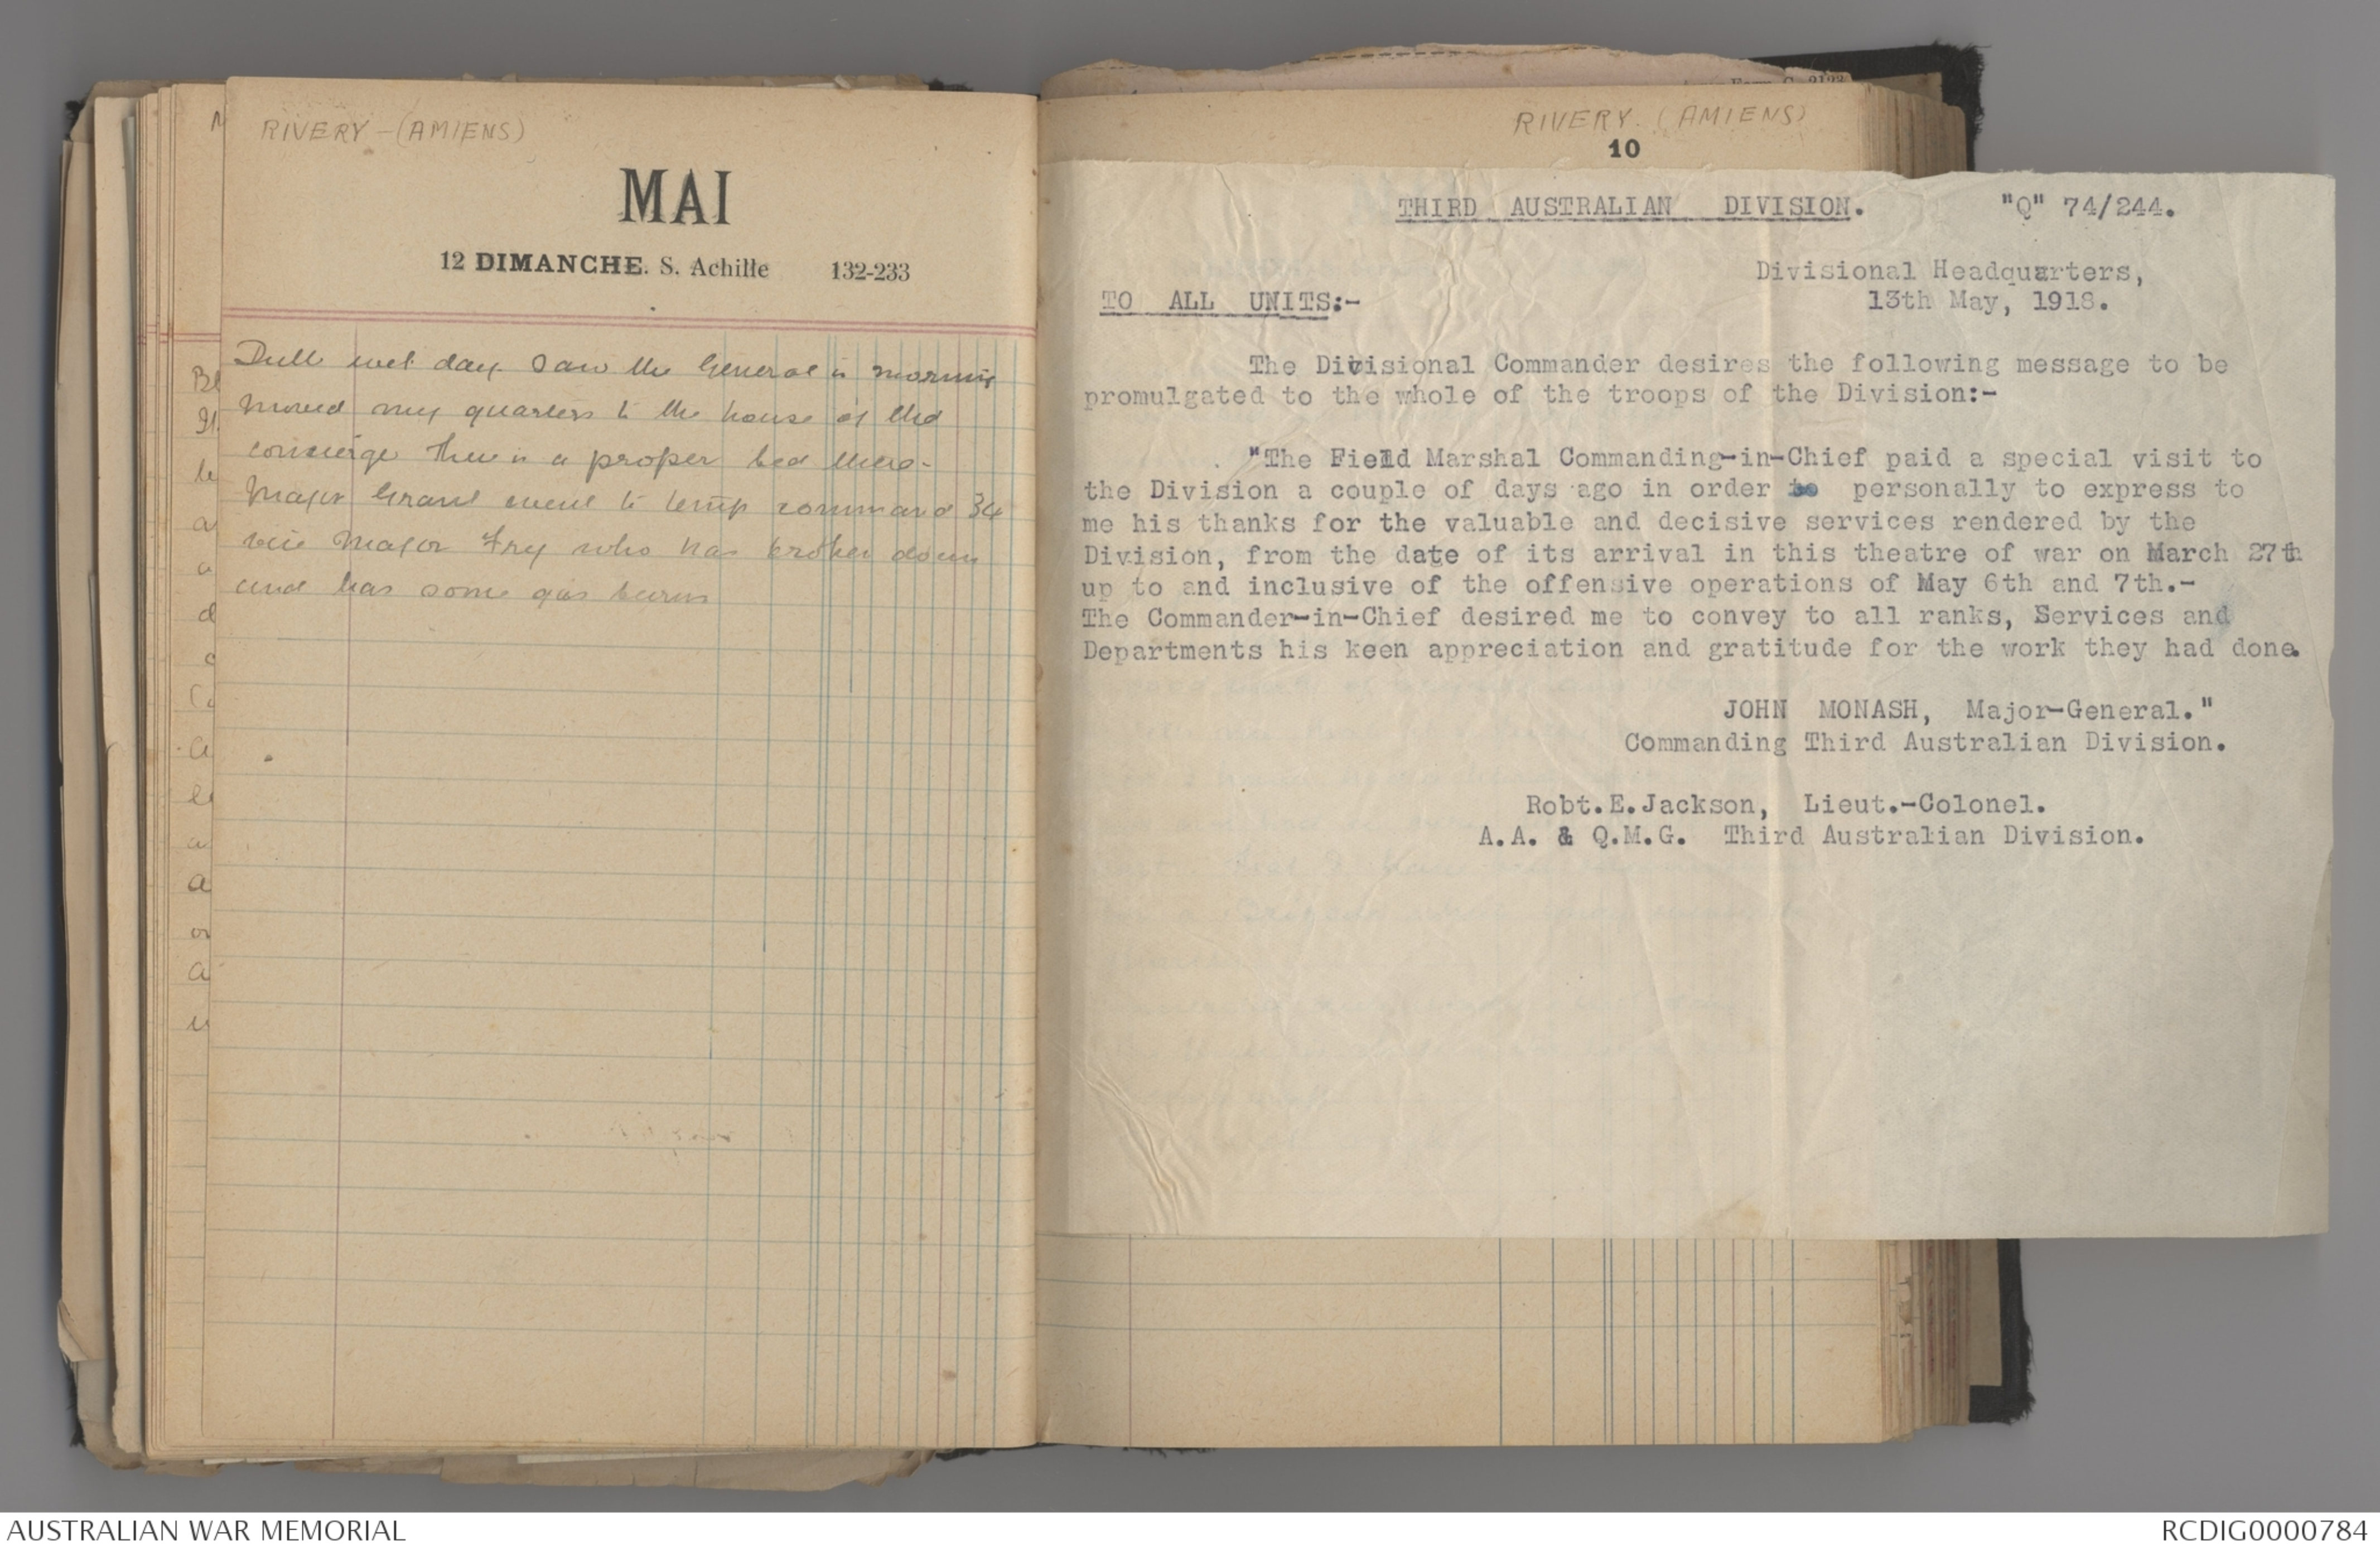 RIVERY - (AMIENS)
MAI
12 DIMANCHE. S. Achille 132-233
Dull wet day. Saw the General in morning
Moved my quarters to the house of the
concierge. There is a proper bed there.
Major Grant went to temp command 34
vice Major Fry who has broken down
and has some gas burns
RIVERY. (AMIENS)
10
THIRD AUSTRALIAN DIVISION. "Q" 74/244.
Divisional Headquarters,
TO ALL UNITS:- 13th May, 1918.
The Divisional Commander desires the following message to be
promulgated to the whole of the troops of the Division:-
"The Field Marshal Commanding-in-Chief paid a special visit to
the Division a couple of days ago in order to personally to express to
me his thanks for the valuable and decisive services rendered by the
Division, from the date of its arrival in this theatre of war on March 27th
up to and inclusive of the offensive operations of May 6th and 7th.-
The Commander-in-Chief desired me to convey to all ranks, Services and
Departments his keen appreciation and gratitude for the work they had done.
JOHN MONASH, Major-General."
Commanding Third Australian Division.
Robt.E.Jackson, Lieut.-Colonel.
A.A. & Q.M.G. Third Australian Division.
AUSTRALIAN WAR MEMORIAL
RCDIG0000784